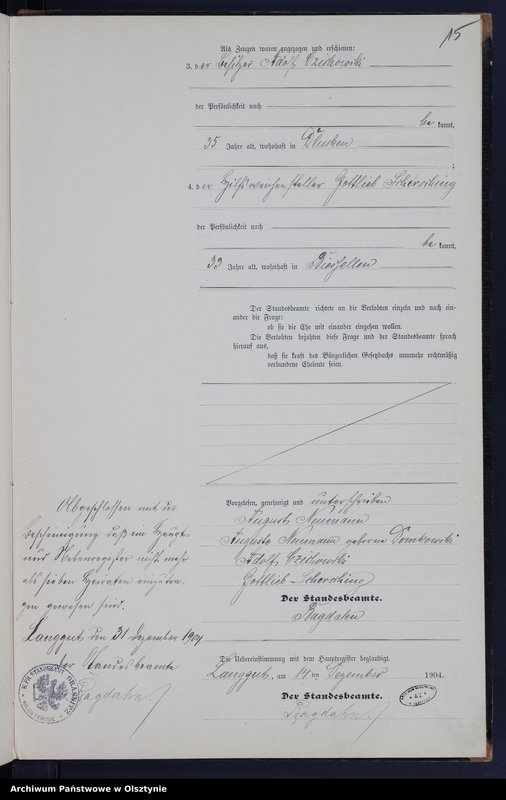 15
Als Zeugen waren zugezogen und erschienen:
3. der Besitzer Adolf Czikowski
der Persönlichkeit nach
be kannt,
35 Jahre alt, wohnhaft in
;
4. der Hilfsweichensteller Gottlieb
der Persönlichkeit nach
be kannt,
33 Jahre alt, wohnhaft in Biessellen
Der Standesbeamte richtete an die Verlobten einzeln und nach ein-
ander die Frage:
ob sie die Ehe mit einander eingehen wollen.
Die Verlobten bejahten diese Frage und der Standesbeamte sprach
hierauf aus,
daß sie kraft des Bürgerlichen Gesetzbuchs nunmehr rechtmäßig
verbundene Eheleute seien.
Vorgelesen, genehmigt und unterschrieben
August Neumann
Auguste Neumann geborene Domkowski
Adolf Czikowski
Gottlieb
Der Standesbeamte.
Bagdahn
Abgeschlossen mit der
Bescheinigung daß im Haupt-
und Nebenregister nicht mehr
als sieben Heiraten eingetra-
gen gewesen sind.
Langgut, den 31 Dezember 1904
Der Standesbeamte
Bagdahn.
Die Uebereinstimmung mit dem Hauptregister beglaubigt.
Langgut, am 14 ten Dezember 1904.
Der Standesbeamte.
Bagdahn.
42
Archiwum Państwowe w Olsztynie